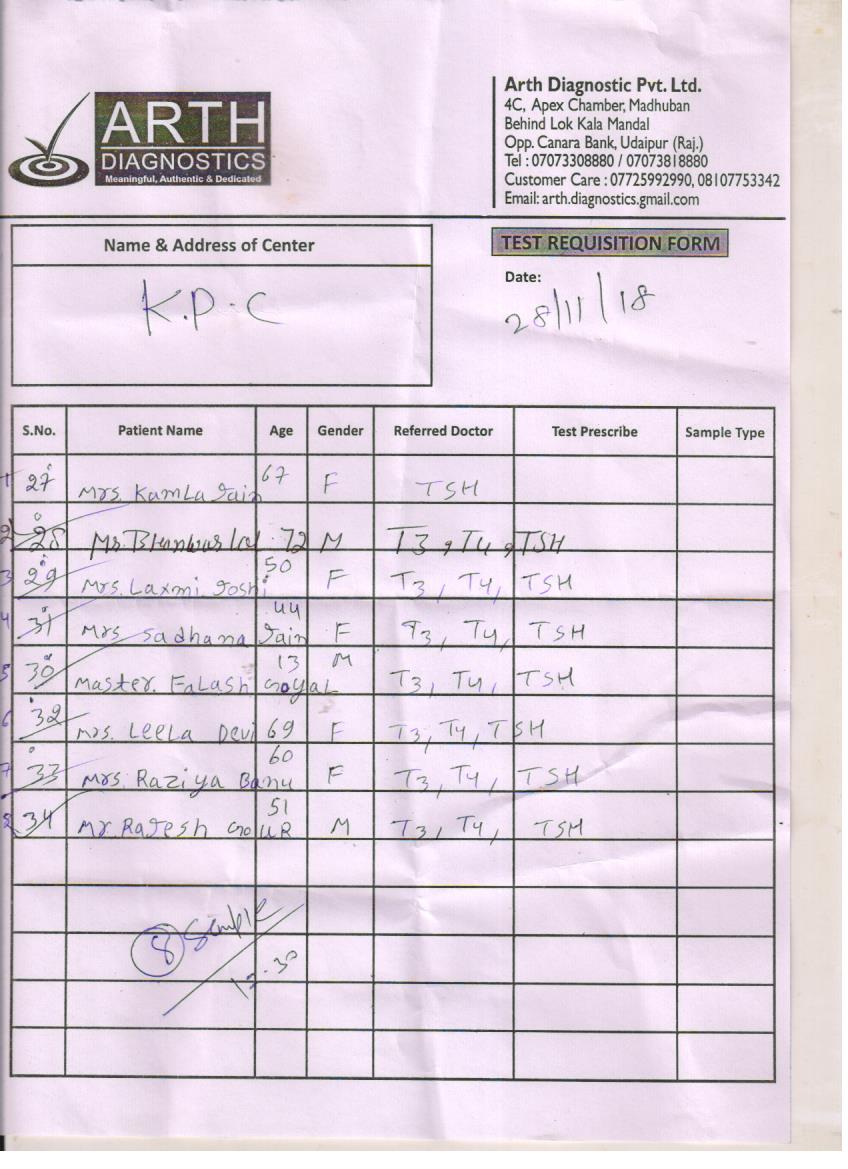 ARTH
DIAGNOSTICS
Meaningful, Authentic & Dedicated
Arth Diagnostic Pvt. Ltd.
4C, Apex Chamber, Madhuban
Behind Lok Kala Mandal
Opp. Canara Bank, Udaipur (Raj.)
Tel : 07073308880 / 07073818880
Customer Care : 07725992990, 08107753342
Email: arth.diagnostics.gmail.com
Name & Address of Center
K.P.C
TEST REQUISITION FORM
Date:
28/11/18
S.No. Patient Name Age Gender Referred Doctor Test Prescribe Sample Type
1 27 Mrs. Kamla Jain 67 F TSH
2 28 Mr. Bhanwar lal 72 M T3, T4, TSH
3 29 Mrs. Laxmi Joshi 50 F T3, T4, TSH
4 31 Mrs Sadhana Jain 44 F T3, T4, TSH
5 30 Master. Falash Goyal 13 M T3, T4, TSH
6 32 Mrs. Leela Devi 69 F T3, T4, TSH
7 33 Mrs Raziya Banu 60 F T3, T4, TSH
8 34 Mr. Rajesh GOUR 51 M T3, T4, TSH
8 Sample
12.30